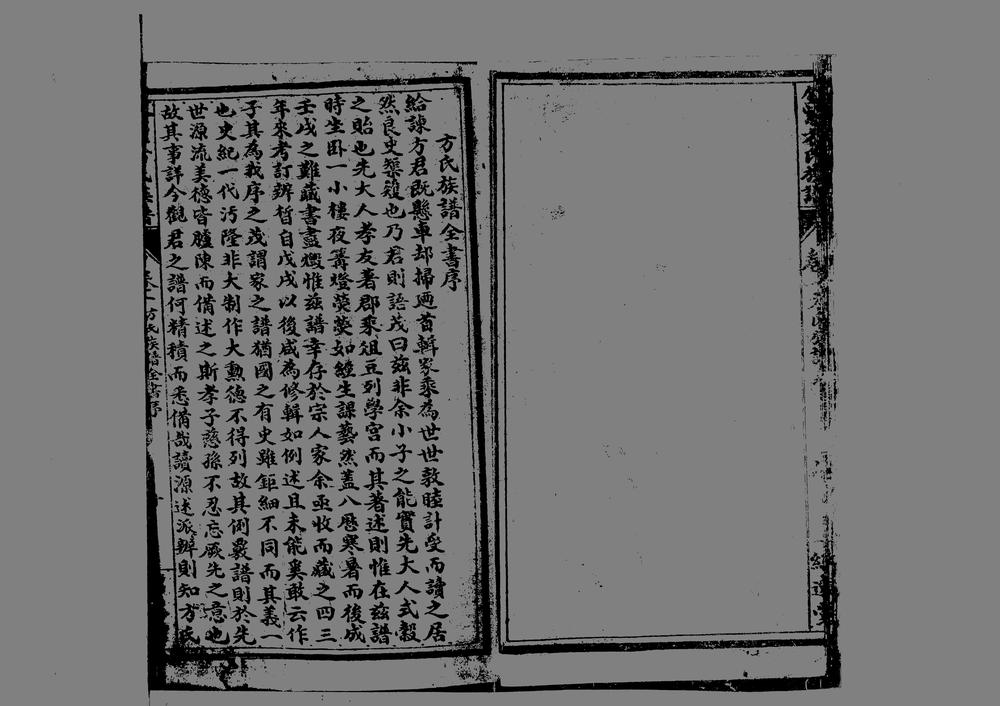 方氏族譜全書序
給諫方君既懸車却掃廼首輯家乘為世世敦睦計受而讀之居
然良史榘矱也乃君則語茂曰茲非余小子之能實先大人式穀
之貽也先大人孝友著郡乘俎豆列學宮而其著述則惟在茲譜
時坐卧一小樓夜篝燈熒熒如經生課藝然蓋八歷寒暑而後成
壬戌之難藏書盡燬惟茲譜幸存於宗人家余亟收而藏之四三
年來考訂辨晳自戊戌以後咸為修輯如例述且未能奚敢云作
子其為我序之茂謂家之譜猶國之有史雖鉅細不同而其義一
也史紀一代汚隆非大制作大勳德不得列故其例嚴譜則於先
世源流美德皆臚陳而備述之斯孝子慈孫不忍忘厥先之意也
故其事詳今觀君之譜何精積而悉備哉讀源述派辨則知方氏
方氏族譜全書序